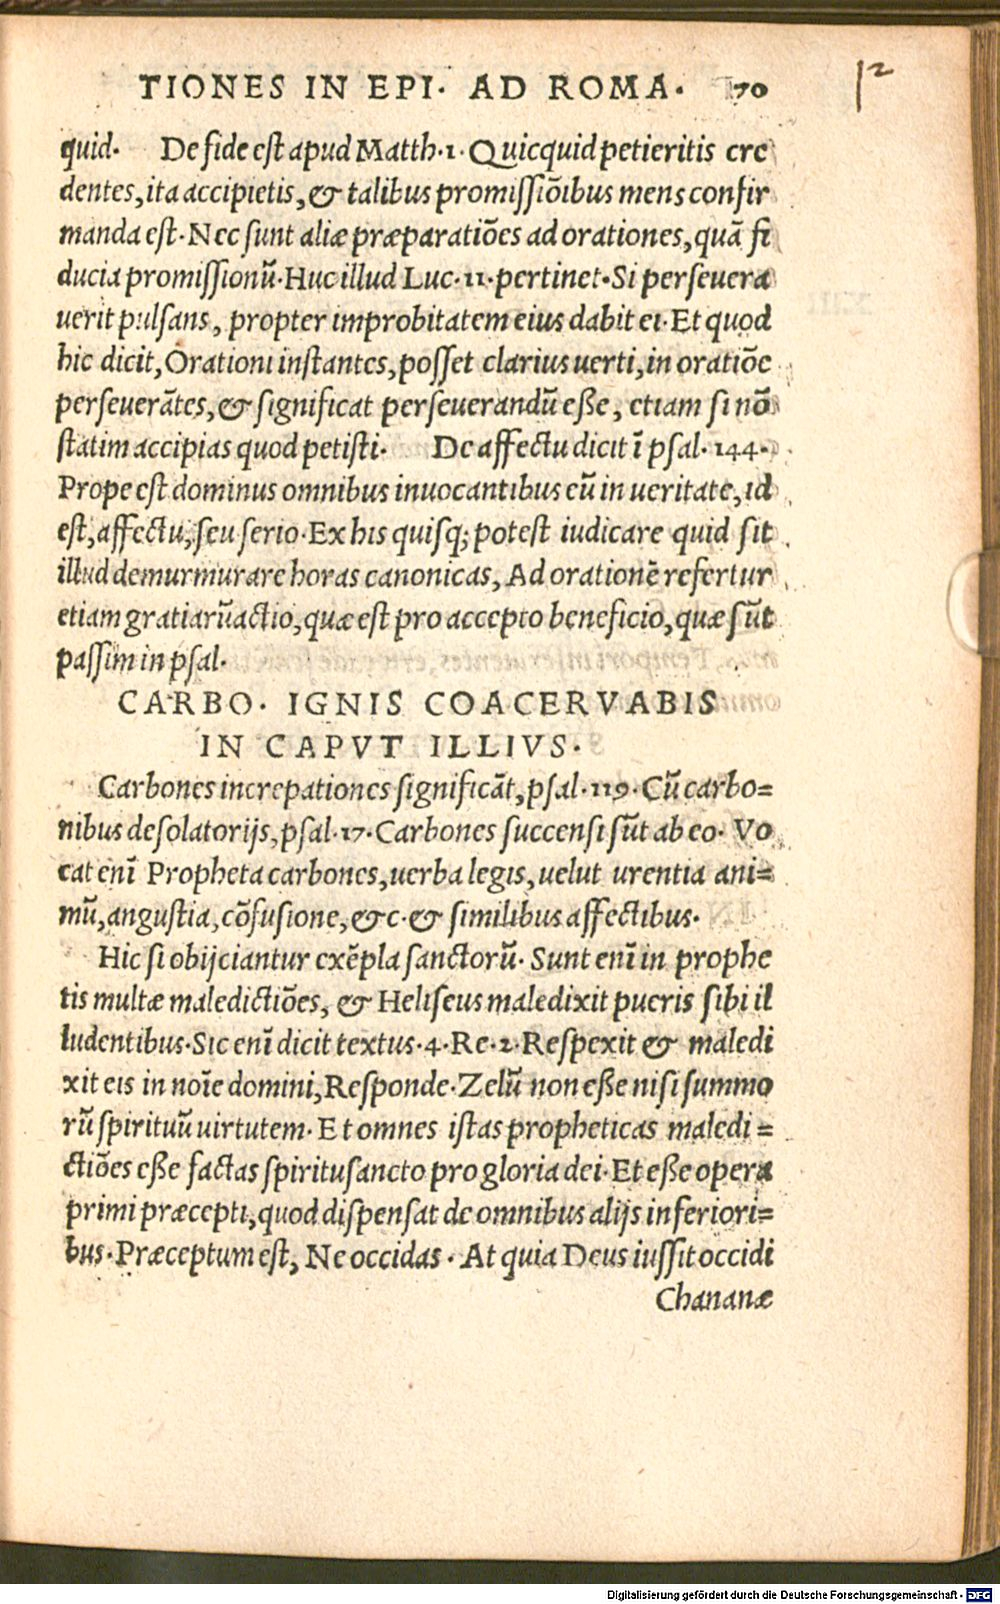 TIONES IN EPI. AD ROMA. 70
12
quid. De fide est apud Matth.1. Quicquid petieritis cre
dentes, ita accipietis, & talibus promissiõibus mens confir
manda est. Nec sunt aliæ præparatiões ad orationes, quã fi
ducia promissionũ. Huc illud Luc.11. pertinet. Si persevera
uerit pulsans, propter improbitatem eius dabit ei. Et quod
hic dicit, Orationi instantes, posset clarius uerti, in oratiõe
perseuerãtes, & significat perseuerandũ eße, etiam si nõ
statim accipias quod petisti. De affectu dicit ĩ psal.144.
Prope est dominus omnibus inuocantibus eũ in ueritate, id
est, affectu, seu serio. Ex his quisq; potest iudicare quid sit
illud demurmurare horas canonicas, Ad orationẽ refertur
etiam gratiarũ actio, quæ est pro accepto beneficio, quæ sũt
passim in psal.
CARBO. IGNIS COACERVABIS
IN CAPVT ILLIVS.
Carbones increpationes significãt, psal.119. Cũ carbo=
nibus desolatorijs, psal.17. Carbones succensi sũt ab eo. Vo
cat enĩ Propheta carbones, uerba legis, uelut urentia ani=
mũ, angustia, cõfusione, &c. & similibus affectibus.
Hic si obijciantur exẽpla sanctorũ. Sunt enĩ in prophe
tis multæ maledictiões, & Heliseus maledixit pueris sibi il
ludentibus. Sic enĩ dicit textus. 4. Re.2. Respexit & maledi
xit eis in noĩe domini, Responde. Zelũ non eße nisi summo
rũ spirituũ uirtutem. Et omnes istas propheticas maledi=
ctiões eße factas spiritusancto pro gloria dei. Et eße opera
primi præcepti, quod dispensat de omnibus alijs inferiori=
bus. Præceptum est, Ne occidas. At quia Deus iussit occidi
Chananæ
Digitalisierung gefördert durch die Deutsche Forschungsgemeinschaft - DFG